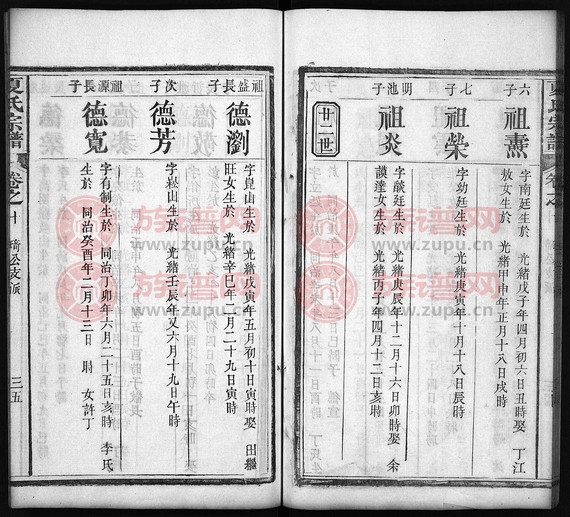 夏氏宗譜
卷之十
六子
祖燾
字南廷生於 光緒戊子年四月初六日丑時娶 丁江
敖女生於 光緒甲申年正月十八日戌時
七子
祖榮
字幼廷生於 光緒庚寅年十月十八日辰時
明池子
祖炎
字酸廷生於 光緒庚辰年十二月十六日卯時娶 余
謨達女生於 光緒丙子年四月十二日亥時
廿二世
祖盛長子
德瀏
字崑山生於 光緒戊寅年五月初十日寅時娶 田繼
旺女生於 光緒辛巳年二月二十九日寅時
次子
德芳
字崧山生於 光緒壬辰年又六月十九日午時
祖源長子
德寬
字有制生於 同治丁卯年六月二十五日亥時 李氏
生於 同治癸酉年二月十三日 時 女許丁
夏氏宗譜
卷之十
三五
族谱网
www.zupu.cn
族谱网
www.zupu.cn